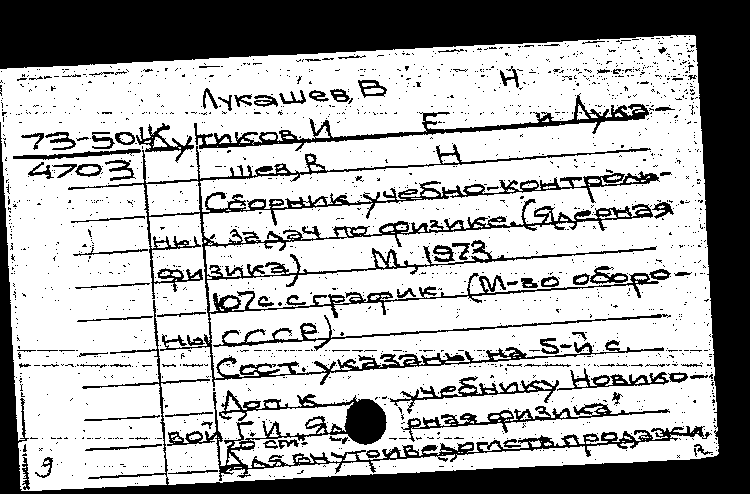 Лукашев, В Н
73-50 Кутиков, И Е и Лука-
4703 шев, В Н
Сборник учебно-контроль-
ных задач по физике. (Ядерная
физика). М., 1973.
107 с. с график. (М-во оборо-
ны СССР).
Сост. указаны на 5-й с.
Доп. к учебнику Новико-
вой Г. И. "Яд рная физика".
Для внутриведомств. продажи.
9